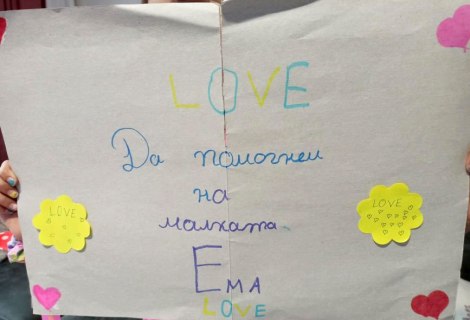 LOVE
Да помогнем
на
LOVE
LOVE
малката
Ема
LOVE